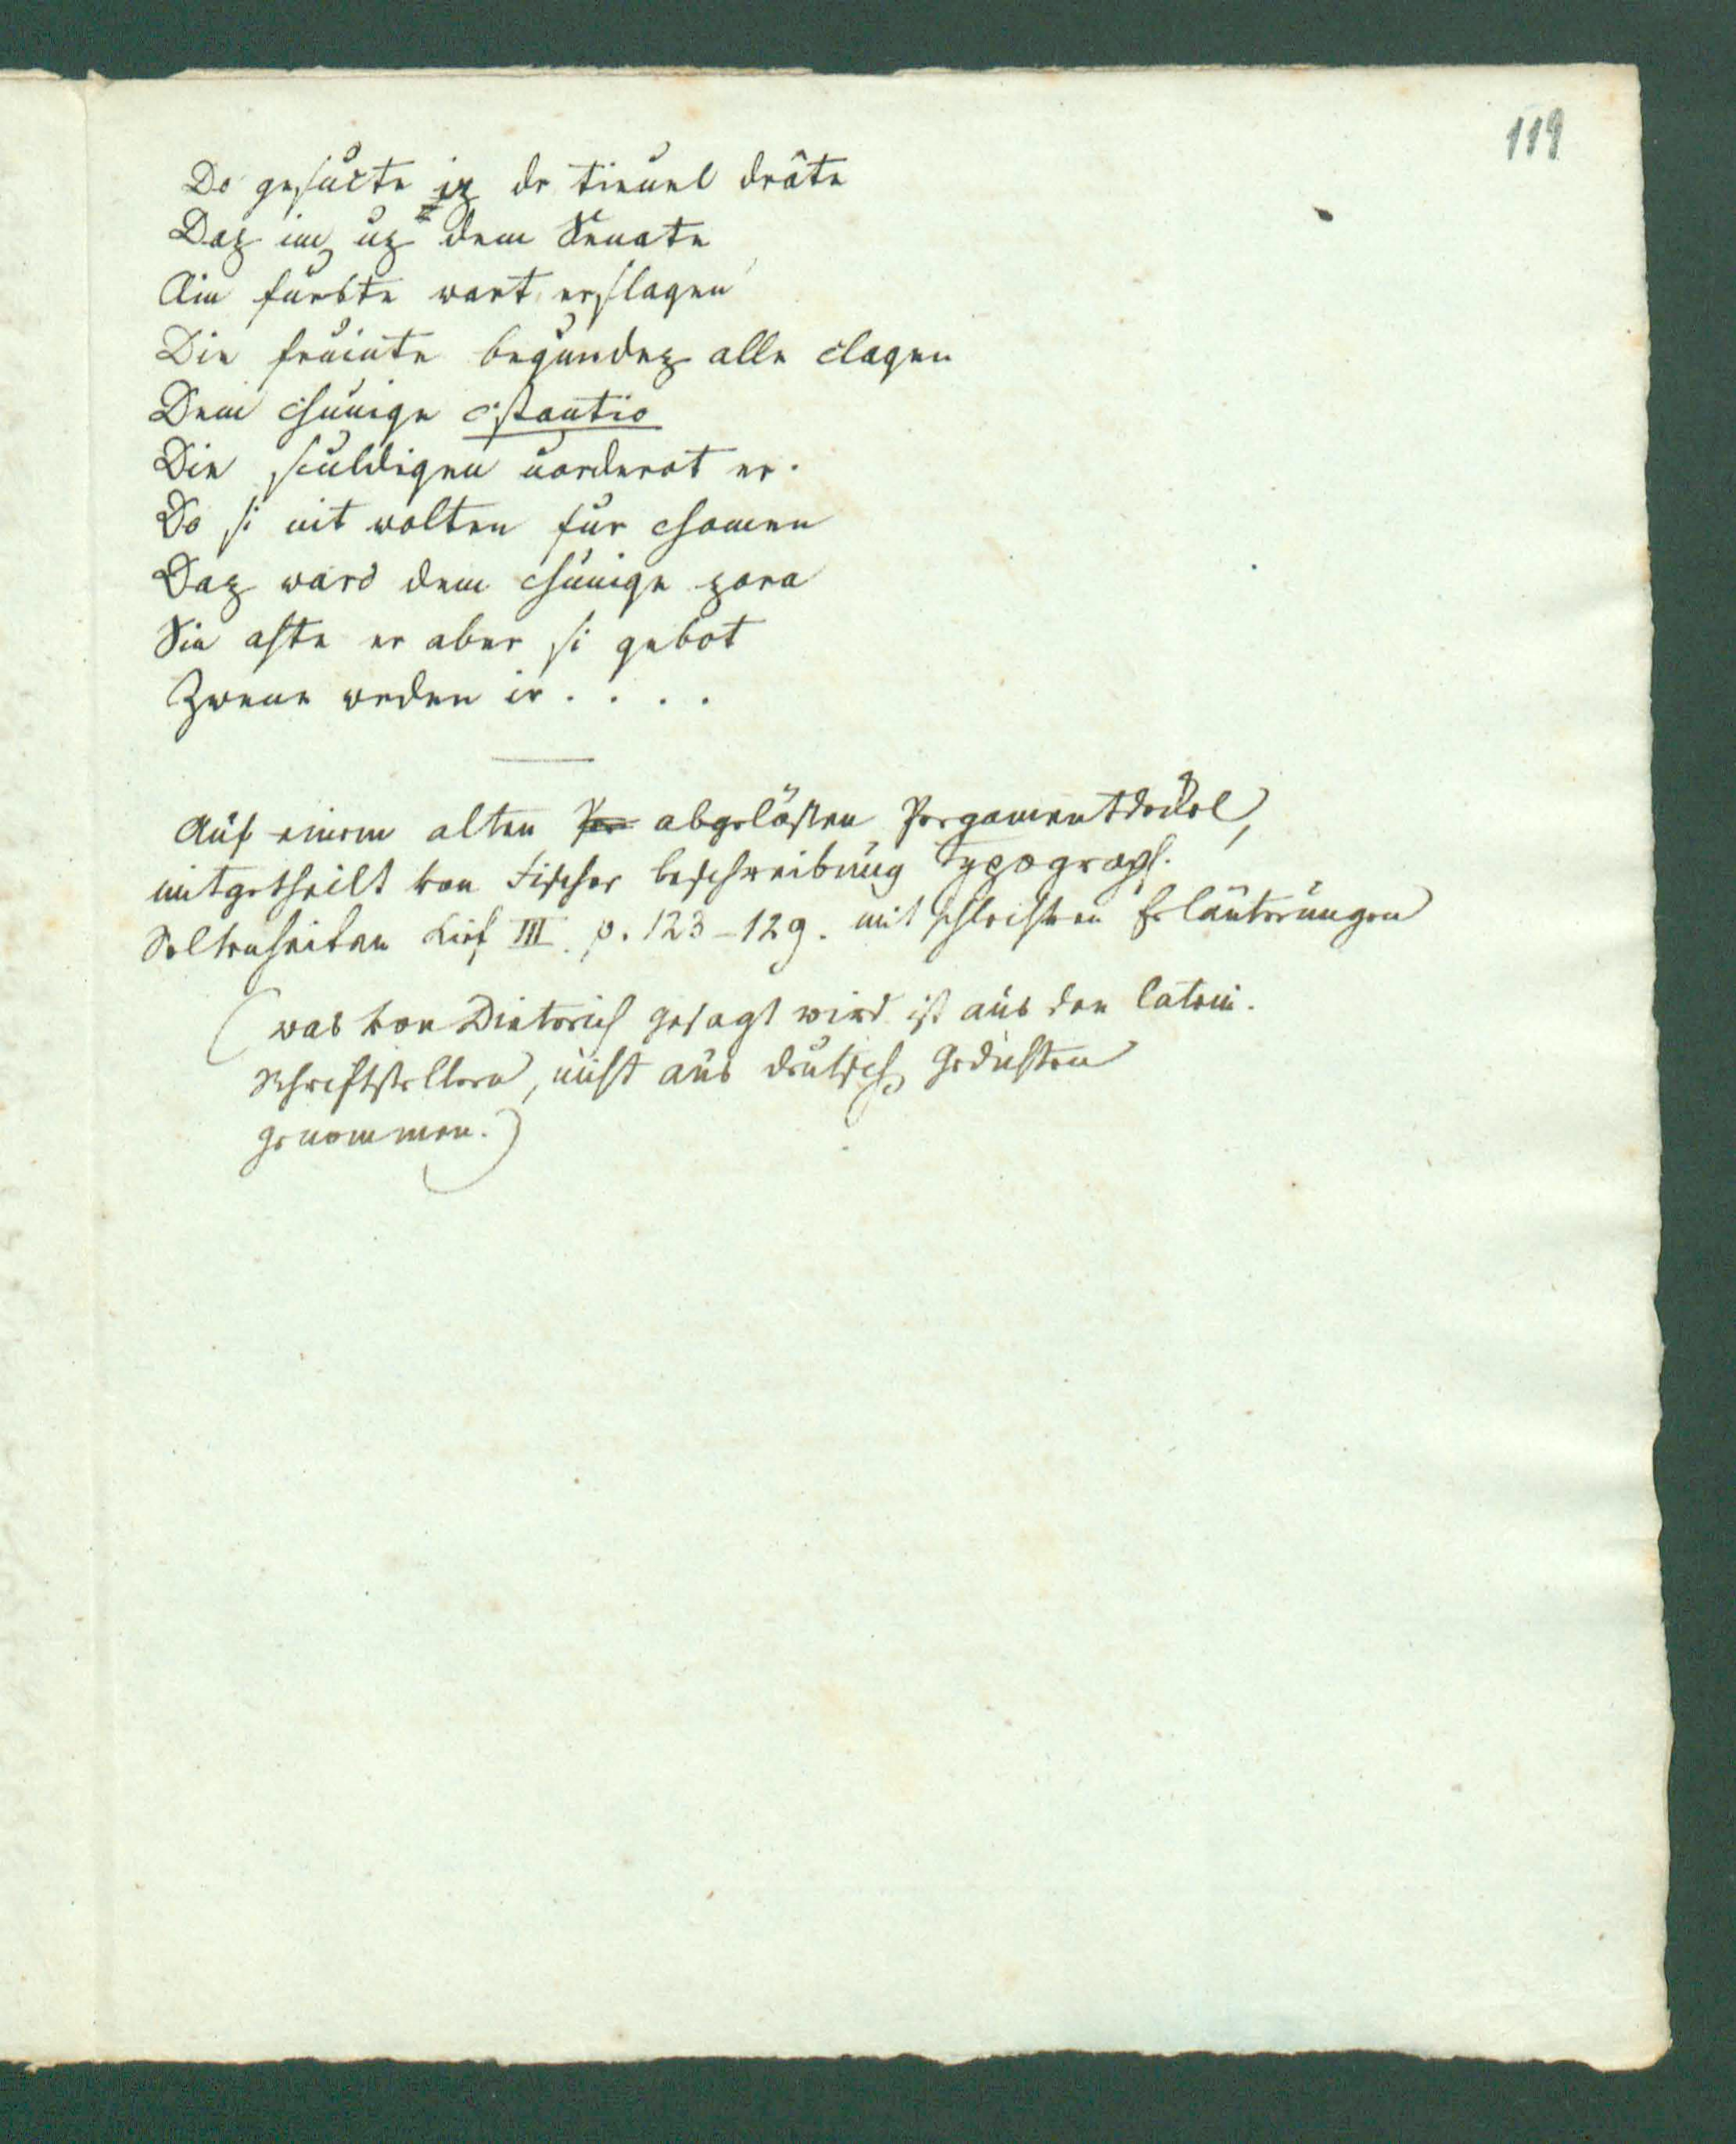 119
Do gesucte iz dr tieuel drâte
Daz im uz dem Senate
Ain furste wart erslagen
Die fruinte begundez alle clagen
Dem chunige cstantio
Die sculdigen uorderot er.
Do si nit wolten fur chomen
Daz ward dem chunige zorn
Sin ahte er aber si gebot
Zwene wrden ir . . . .
Auf einem alten Per abgelösten Pergamentdeckel,
mitgetheilt von Fischer beschreibung typograph.
Seltenheiten Lief III. p. 123-129. mit schlechten Erläuterungen
(was von Dieterich gesagt wird ist aus den latein.
Schriftstellern, nicht aus deutsch Gedichten
genommen.)